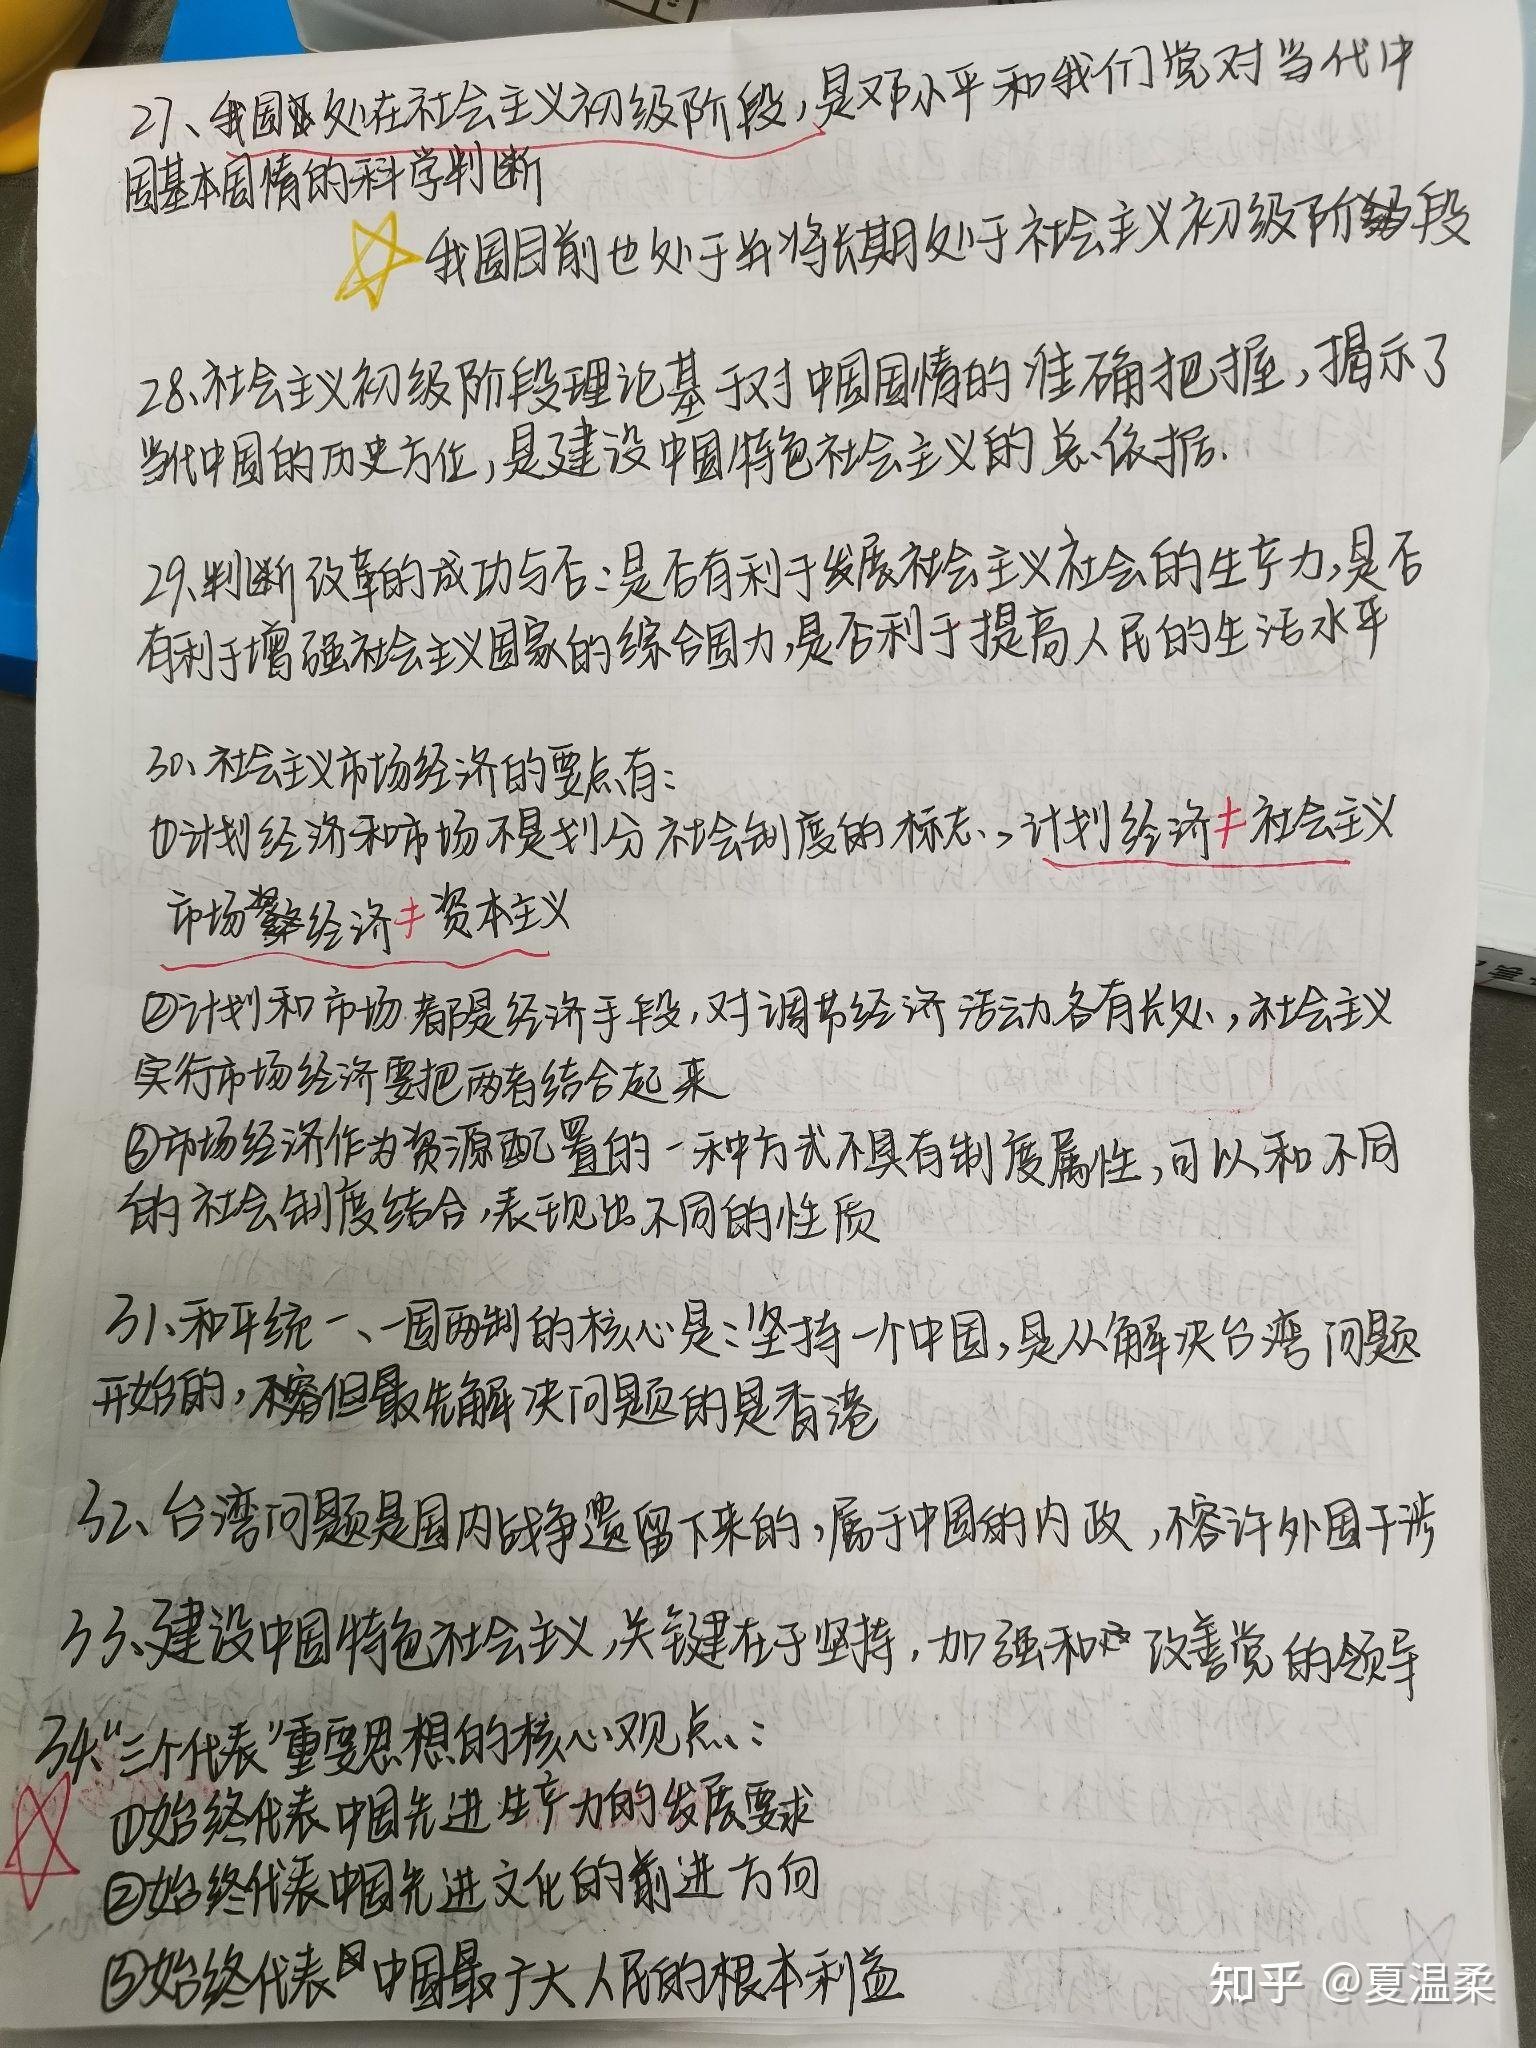 27、我国处在社会主义初级阶段,是邓小平和我们党对当代中
国基本国情的科学判断
我国目前也处于并将长期处于社会主义初级阶段
28、社会主义初级阶段理论基于对中国国情的准确把握,揭示了
当代中国的历史方位,是建设中国特色社会主义的总依据.
29、判断改革的成功与否:是否有利于发展社会主义社会的生产力,是否
有利于增强社会主义国家的综合国力,是否利于提高人民的生活水平
30、社会主义市场经济的要点有:
①计划经济和市场不是划分社会制度的标志,计划经济≠社会主义
市场经济≠资本主义
②计划和市场都是经济手段,对调节经济活动各有长处,社会主义
实行市场经济要把两者结合起来
③市场经济作为资源配置的一种方式不具有制度属性,可以和不同
的社会制度结合,表现出不同的性质
31、和平统一、一国两制的核心是:坚持一个中国,是从解决台湾问题
开始的,但最先解决问题的是香港
32、台湾问题是国内战争遗留下来的,属于中国的内政,不容许外国干涉
33、建设中国特色社会主义,关键在于坚持,加强和改善党的领导
34、“三个代表”重要思想的核心观点:
①始终代表中国先进生产力的发展要求
②始终代表中国先进文化的前进方向
③始终代表中国最广大人民的根本利益
知乎 @夏温柔